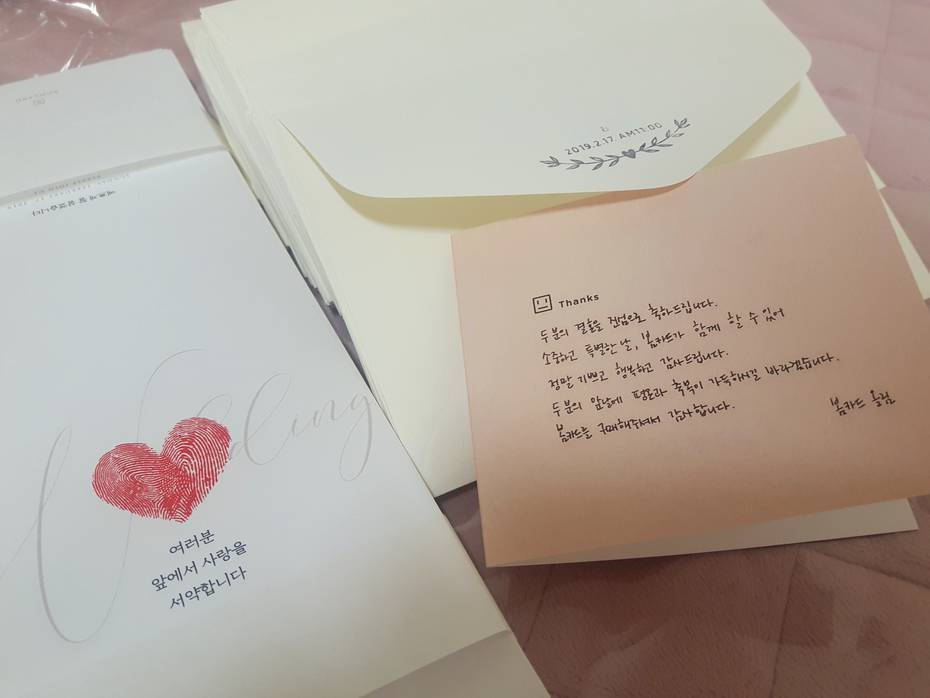 2019.2.17. AM11:00
Thanks
두분의 결혼을 진심으로 축하드립니다.
소중하고 특별한 날, 봄카드가 함께 할 수 있어
정말 기쁘고 행복하고 감사드립니다.
두 분의 앞날에 평온과 축복이 가득하시길 바라겠습니다.
봄카드를 구매해주셔서 감사합니다.
봄카드 올림
Wedding
여러분
앞에서 사랑을
서약합니다